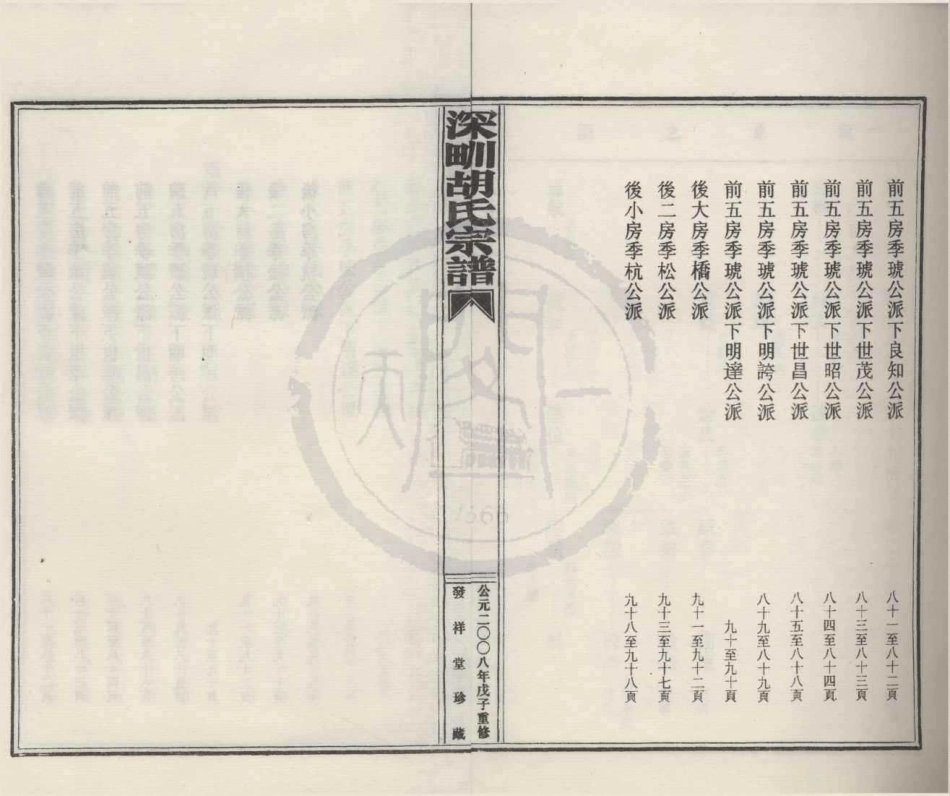 前五房季琥公派下良知公派 八十一至八十二頁
前五房季琥公派下世茂公派 八十三至八十三頁
前五房季琥公派下世昭公派 八十四至八十四頁
前五房季琥公派下世昌公派 八十五至八十八頁
前五房季琥公派下明誇公派 八十九至八十九頁
前五房季琥公派下明達公派 九十至九十頁
後大房季橋公派 九十一至九十二頁
後二房季松公派 九十三至九十七頁
後小房季杭公派 九十八至九十八頁
深甽胡氏宗譜
公元二〇〇八年戊子重修
發祥堂珍藏